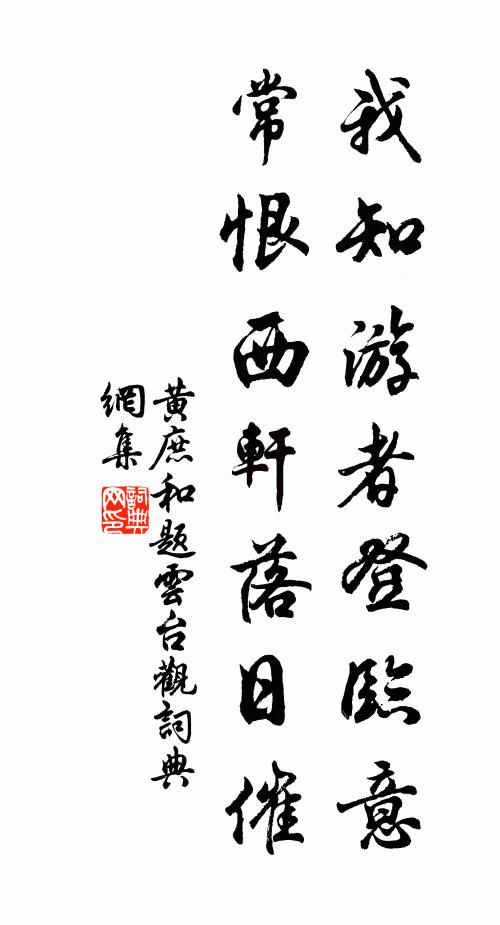 我知游者登臨意
常恨西軒落日催
黃庶和題雲台觀詞典
網集
詞典
网印